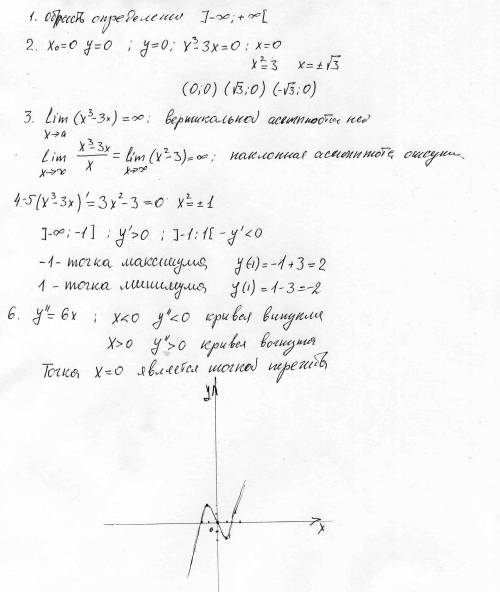 1. Область определения ]-∞;+∞[
2. x₀=0 y=0 ; y=0; x³-3x=0 ; x=0
x²=3 x=±√3
(0;0) (√3;0) (-√3;0)
3. Lim (x³-3x)=∞; вертикальной асимптоты нет
x→a
Lim x³-3x/x = Lim (x²-3)=∞; наклонная асимптота отсутв.
x→∞ x→∞
4.-5(x³-3x)'=3x²-3=0 x²=±1
]-∞;-1] ; y'>0 ; ]-1:1[ - y'<0
-1- точка максимума y(-1)=-1+3=2
1 - точка минимума y(1)=1-3=-2
6. y"=6x ; x<0 y"<0 кривая выпукла
x>0 y">0 кривая вогнута
Точка x=0 является точкой перегиба
y
0
x